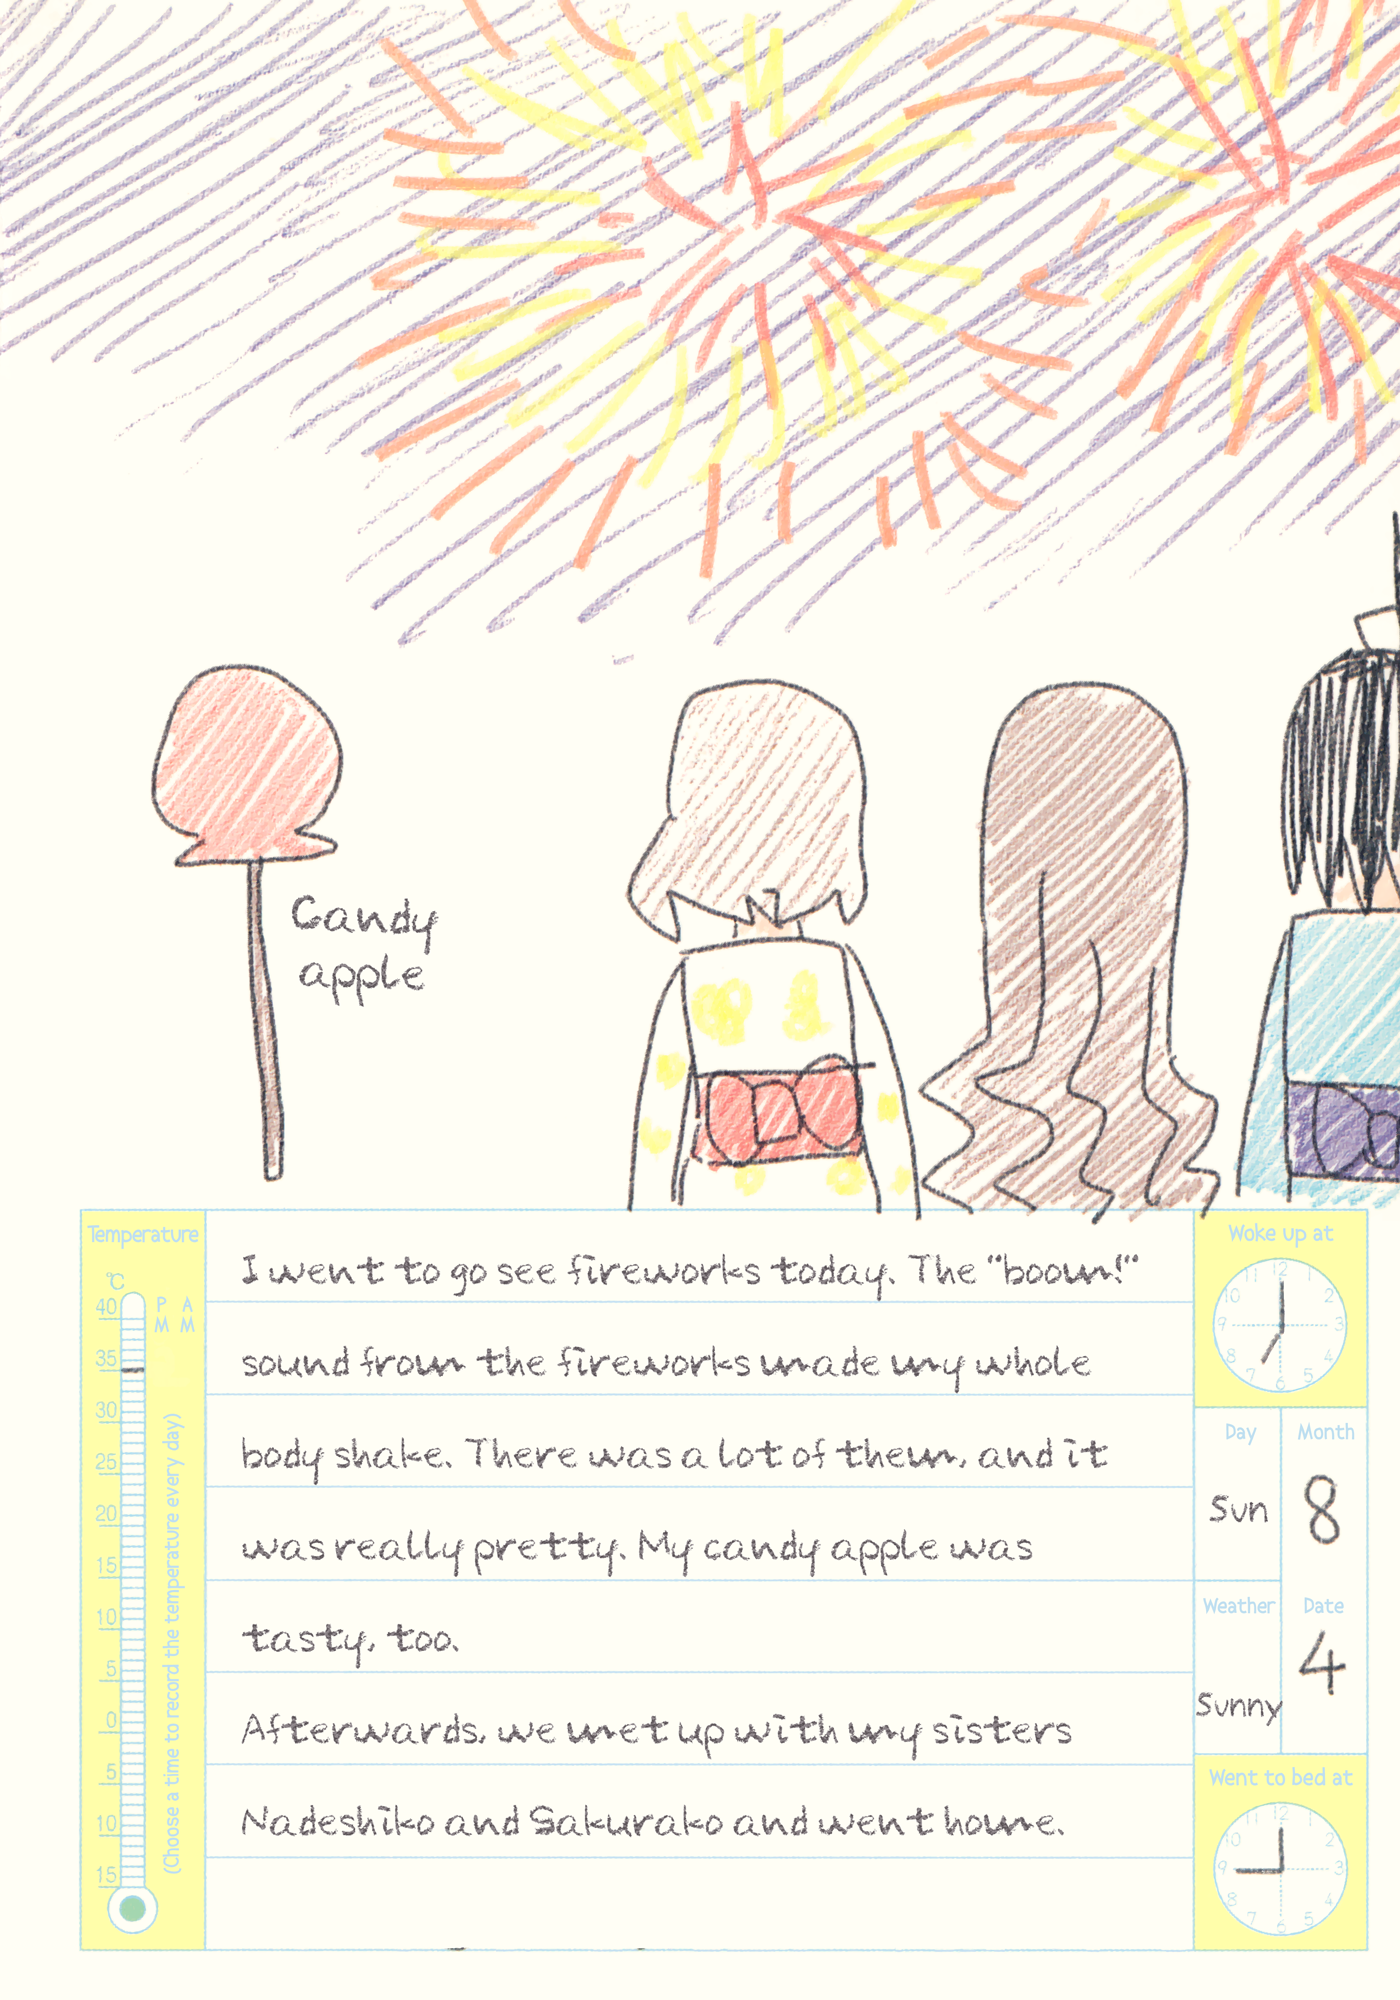 Candy
apple
Temperature
℃
40
35
30
25
20
15
10
5
0
5
10
15
PM AM
(Choose a time to record the temperature every day)
I went to go see fireworks today. The "boom!"
sound from the fireworks made my whole
body shake. There was a lot of them, and it
was really pretty. My candy apple was
tasty, too.
Afterwards, we met up with my sisters
Nadeshiko and Sakurako and went home.
Woke up at
11 12 1
10 2
9 3
8 4
7 6 5
Day Month
Sun 8
Weather Date
Sunny 4
Went to bed at
11 12 1
10 2
9 3
8 4
7 6 5